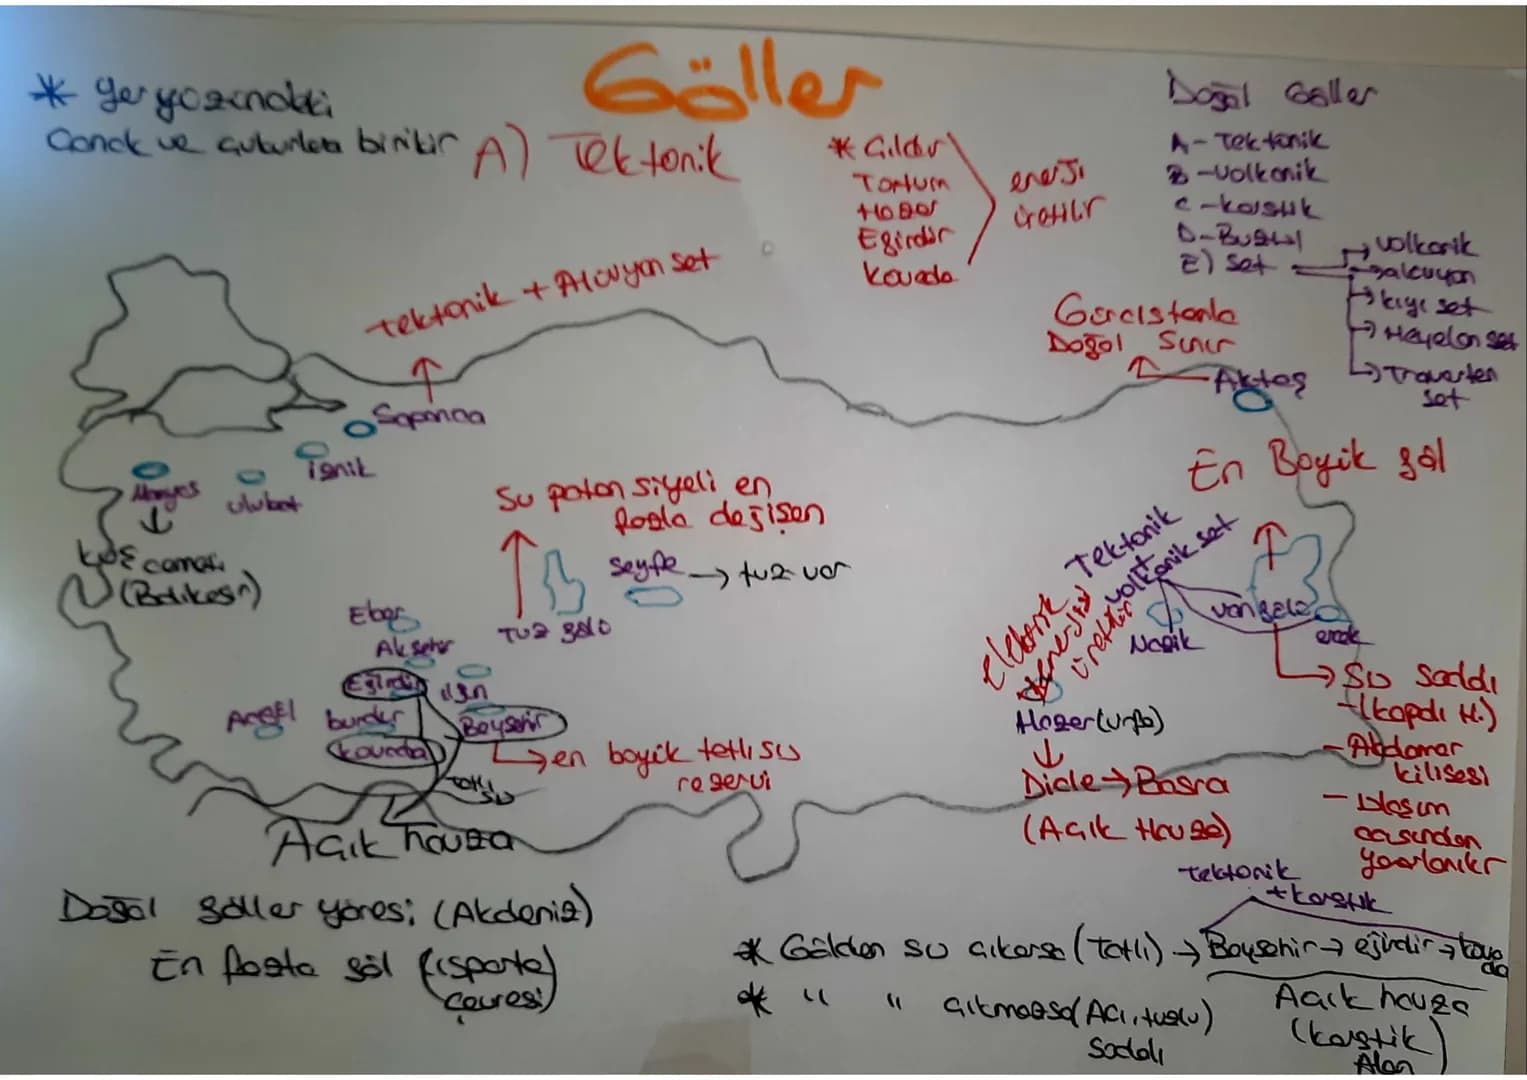 Göller
* yer yüzündeki
Çanak ve çukurlara birikir
A) Tektonik
* Çıldır
Tortum
Hazar
Eğirdir
Kovada
enerji
üretilir
Doğal Göller
A- Tektonik
B- Volkanik
C- karstik
D- Buzul
E) Set
→ volkanik
→ alüvyon
→ kıyı set
→ Heyelan set
→ Traverten
set
Tektonik + Alüvyon set
Gürcistanla
Doğal Sınır
Aktaş
Sapanca
iznik
Manyas
ulubat
kuş cenneti
(Balıkesir)
En Büyük göl
Su potansiyeli en
fazla değişen
Seyfe → tuz var
Tuz gölü
Tektonik
+
volkanik set
Elektrik
enerjisi
üretilir
Nazik
van gölü
erçek
Eber
Akşehir
Eğirdir
ılgın
Acıgöl
burdur
Beyşehir
kovada
tatlı
su
→ en büyük tatlı su
rezervi
Hazar (urfa)
Dicle → Basra
(Açık Havza)
→ Su sodalı
- (kapalı H.)
- Akdamar
kilisesi
- Ulaşım
açısından
yararlanılır
Açık havza
Doğal göller yöresi (Akdeniz)
En fazla göl (ısparta
çevresi)
tektonik
+ karstik
* Gölden su çıkarsa (tatlı) → Beyşehir → eğirdir → kova
da
* " " çıkmazsa (Acı, tuzlu)
Sodalı
Açık havza
(karstik
Alan)